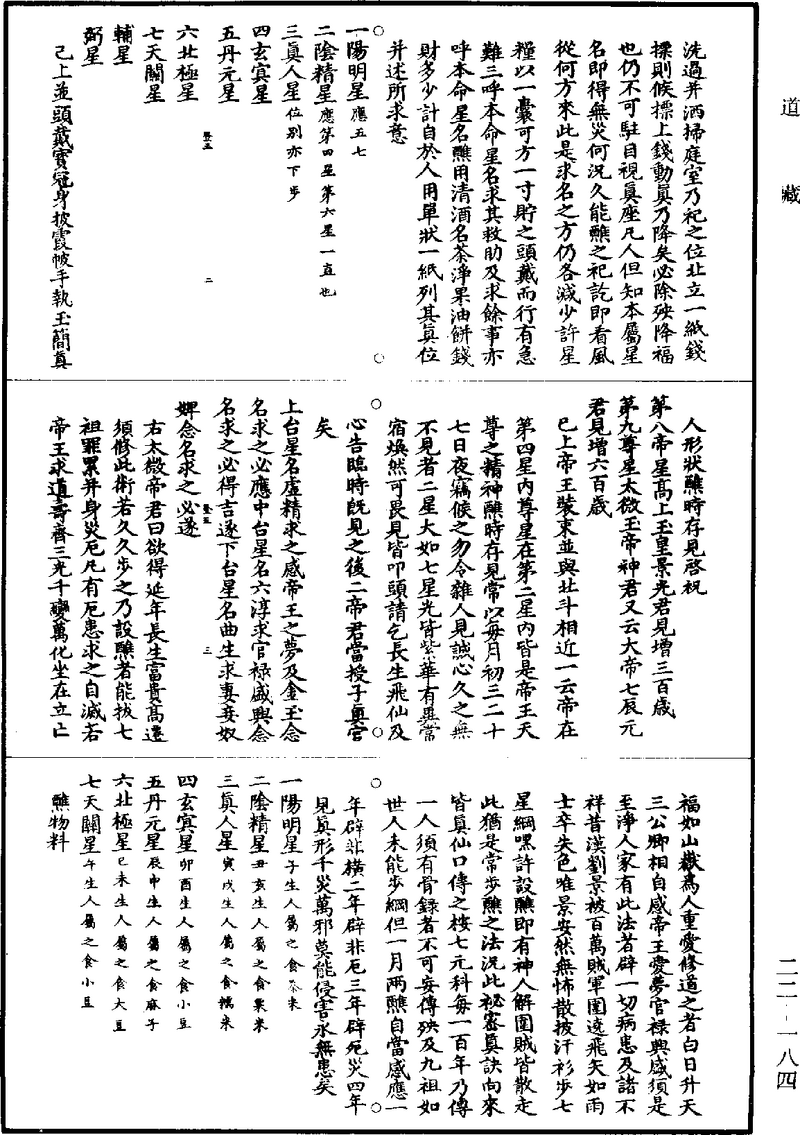 道藏
洗過并洒掃庭室乃祀之位北立一紙錢
摽則候摽上錢動真乃降矣必除殃降福
也仍不可駐目視真座凡人但知本屬星
名即得無災何況久能醮之祀訖即看風
從何方來此是求名之方仍各減少許星
糧以一囊可方一寸貯之頭戴而行有急
難三呼本命星名求其救助及求餘事亦
呼本命星名醮用清酒名茶淨果油餅錢
財多少計自於人用單狀一紙列其真位
并述所求意
一陽明星應五七
二陰精星應第四星第六星一直也
三真人星位别亦下步
四玄冥星
五丹元星
六北極星
七天關星
輔星
弼星
已上並頭戴寶冠身披霞帔手執玉簡真
人形狀醮時存見啓祝
第八帝星高上玉皇景光君見增三百歲
第九尊星太微玉帝神君又云大帝七辰元
君見增六百歲
已上帝王裝束並與北斗相近一云帝在
第四星內尊星在第二星內皆是帝王天
尊之精神醮時存見常以每月初三二十
七日夜竊候之勿令雜人見誠心久之無
不見者二星大如七星光皆紫華有異常
宿煥然可畏見皆叩頭請乞長生飛仙及
心告臨時旣見之後二帝君當授子真官
矣
上台星名虛精求之感帝王之夢及金玉念
名求之必應中台星名六淳求官祿盛興念
名求之必得吉遂下台星名曲生求妻妾奴
婢念名求之必遂
右太微帝君曰欲得延年長生富貴高遷
須修此術若久久步之乃設醮者能拔七
祖罪累并身災厄凡有厄患求之自滅若
帝王求道壽齊三光千變萬化坐在立亡
福如山嶽為人重愛修道之者白日升天
三公卿相自感帝王愛夢官祿興盛須是
至淨人家有此法者辟一切病患及諸不
祥昔漢劉景被百萬賊軍圍遶飛矢如雨
士卒失色唯景安然無怖散披汗衫步七
星綱嘿許設醮即有神人解圍賊皆散走
此猶是常步醮之法況此祕審真訣向來
皆真仙口傳之按七元科每一百年乃傳
一人須有骨錄者不可妄傳殃及九祖如
世人未能步綱但一月兩醮自當感應一
年辟非橫二年辟非厄三年辟死災四年
見真形千災萬邪莫能侵害永無患矣
一陽明星子生人屬之食黍米
二陰精星丑亥生人屬之食粟米
三真人星寅戌生人屬之食糯米
四玄冥星卯酉生人屬之食小豆
五丹元星辰申生人屬之食麻子
六北極星巳未生人屬之食大豆
七天關星午生人屬之食小豆
醮物料
二二-一八四